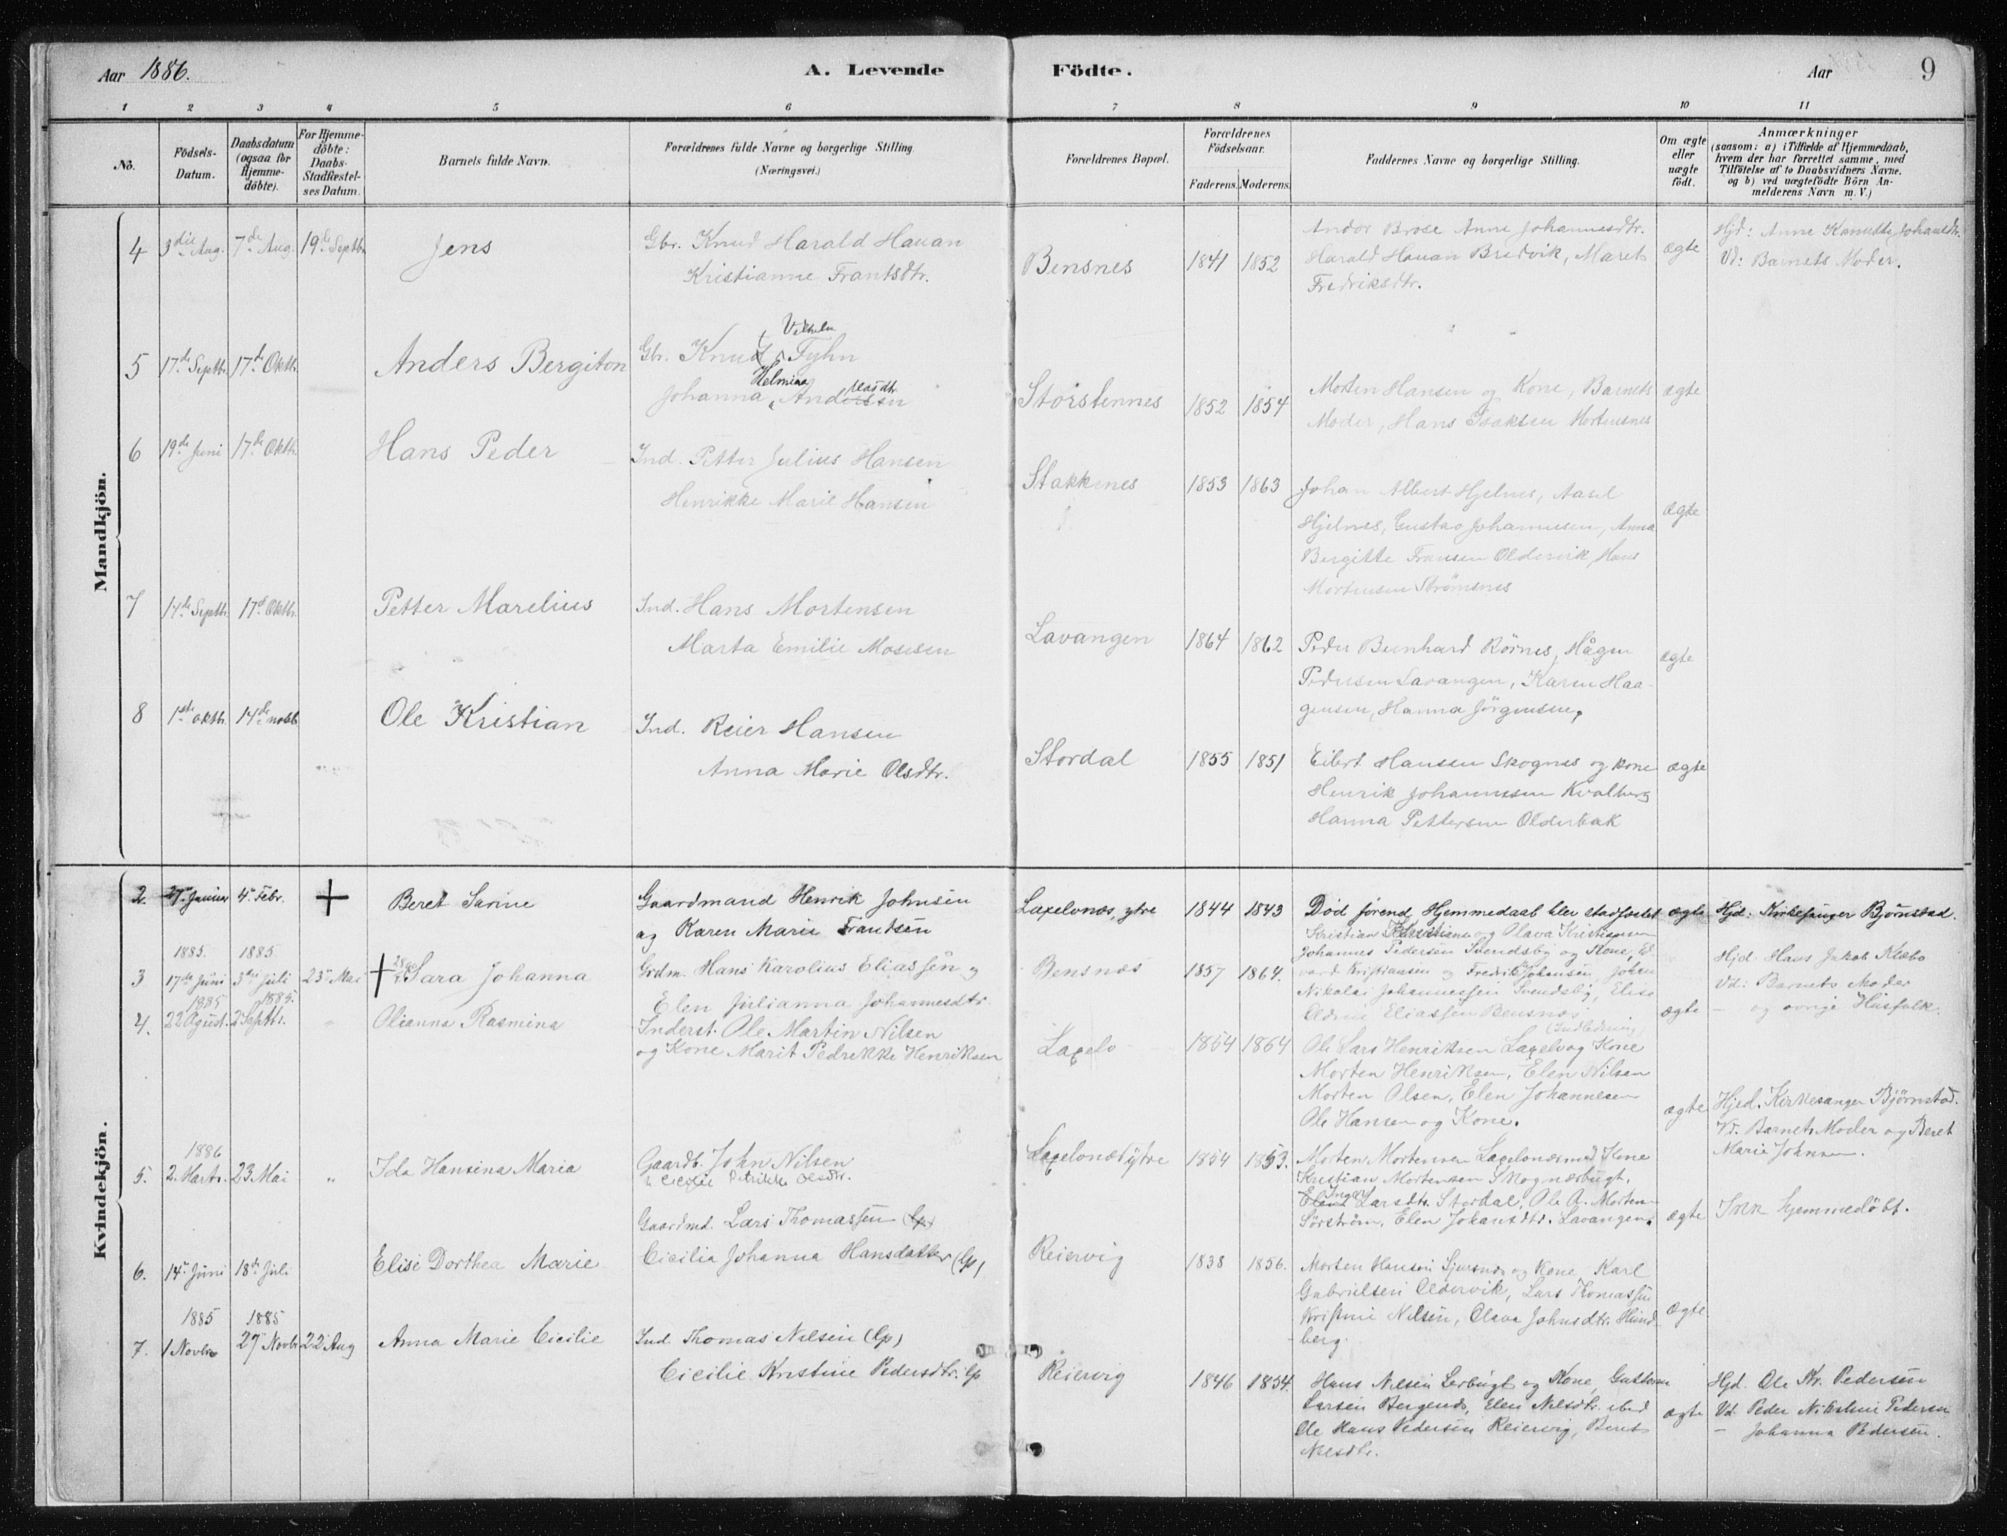 Aar 1886. A. Levende Födte. Aar 9
1 2 3 4 5 6 7 8 9 10 11
No. Födsels-Datum. Daabsdatum (ogsaa for Hjemme-döbte). For Hjemme-döbte: Daabs-Stadfæstel-ses Datum. Barnets fulde Navn. Forældrenes fulde Navne og borgerlige Stilling. (Næringsvei.) Forældrenes Bopæl. Forældrenes Födselsaar. Faderens. Moderens. Faddernes Navne og borgerlige Stilling. Om ægte eller uægte födt. Anmærkninger (saasom: a) i Tilfælde af Hjemmedaab, hvem der har forrettet samme, med Tilföielse af to Daabsvidners Navne, og b) ved uægtefödte Börn An-melderens Navn m. V.)
Mandkjön.
4 3die Aug. 7de Aug. 19de Septbr. Jens Gbr. Knud Harald Hauan
Kristianne Frantsdtr.
Bensnes 1841 1852
Andor Brose Anne Johannesdtr.
Harald Hauan Bredvik, Maret
Fredriksdtr.
ægte
Hjd: Anne Johansdtr.
Vd: Barnets Moder.
5 17de Septb. 17de Oktb. Anders Bergiton Gbr. Knud Vilhelm Tyhn
Johanna Helmina Andersen
Storstennes 1852 1854
Morten Hansen og Kone, Barnets
Moder, Hans Isaksen
ægte
6 19de Juni 17de Oktb. Hans Peder Ind. Petter Julius Hansen
Henrikke Marie Hansen
Stakkenes 1853 1863
Johan Albert Hjelnes, Aasel
Hjelnes, Gustav Johannesen, Anna
Bergitte Fransen Oldervik, Hans
Mortensen Strömsnes
ægte
7 14de Septb. 17d. Oktbr. Petter Marelius Ind. Hans Mortensen
Marta Emilie Mosesen
Lavangen 1864 1862
Peder Bernhard Rörnes, Hågen
Pedersen Lavangen, Karen Haa-
gensen, Hanna Jörgensen.
ægte
8 1ste oktb. 14de novb. Ole Kristian Ind. Reier Hansen
Anna Marie Olsdtr.
Stordal 1855 1851
Eilert Hansen Skognes og kone
Henrik Johannesen Kvalberg
Hanna Pettersen Olderbak
ægte
Kvindekjön.
2. 27. Januar 4. Febr. + Beret Sarine Gaardmand Henrik Johnsen
og Karen Marie Frantsen
Laxelvnæs, ytre 1844 1843
Död förend Hjemmedaab blev stadfæstet
ægte
Hjd: Kirkesanger Bjørnstad.
3 1885. 17de Juni 1885. 3die Juli 23de Mai + Sara Johanna Grdm. Hans Karolius Eliassen og
Elen Julianna Johannesdtr.
Bensnæs 1857 1864.
Kristian og Olava Kristiansen
Johannes Pedersen Svendsby og Kone, Ed-
vard Kristiansen og Fredrik Johansen, Johan
Nikolai Johannessen Svendsby, Elise
Eliassen Bensnæs
ægte
Hjd Hans Jakob Klæbo
Vd: Barnets Moder
— og övrige Husfolk.
4. 1885 22 Agust. 1885. 2 Septbr. " Olianna Rasmina Inderst. Ole Martin Nilsen
og Kone Marit Pedrekke Henriksen
Laxelv 1854 1864
Ole Lars Henriksen Laxelv og Kone
Morten Henriksen, Elen Nilsen
Morten Olsen, Elen Johannesen
Ole Hansen og Kone.
ægte
Hjed. Kirkesanger Bjørnstad.
Vd. Barnets Moder og Beret
Marie Johnsen.
5. 1886 2. Marts. 23. Mai " Ida Hansina Maria Gaardb. John Nilsen
Cicilie Olsdtr.
Laxelvnæs ytre 1854 1853.
Morten Mortensen Laxelvnæs med Kone
Kristian Mortensen Skognæsbugt,
Inger Larsdtr. Stordal, Ole A. Morten-
Sörström, Elen Johansdtr. Lavangen.
ægte
Ikke hjemmedöbt.
6. 14. Juni 18de Juli Elise Dorthea Marie Gaardmd. Lars Thomassen (Lp)
Cicilia Johanna Hansdatter (Lp)
Reiervig 1838 1856.
Morten Hansen Sjursnæs og Kone, Karl
Gabrielsen Oldervik, Lars Tomassen
Kristine Nilsen, Olava Johnsdtr. Hund-
berg.
ægte
7. 1885 1 Novbr 1885 27 Novbr 22 Aug Anna Marie Cicilie Ind Thomas Nilsen (Lp)
Cicilie Kristine Pedersdtr. Lp
Reiervig 1846 1854.
Hans Nilsen Lerbugt og Kone,
Larsen Elen Nilsdtr. ibid
Ole Hans Pedersen Reiervig, Beret
Nilsdtr.
ægte
Hjd. Ole Kr. Pedersen
Vd. Peder Pedersen
— Johanna Pedersen.